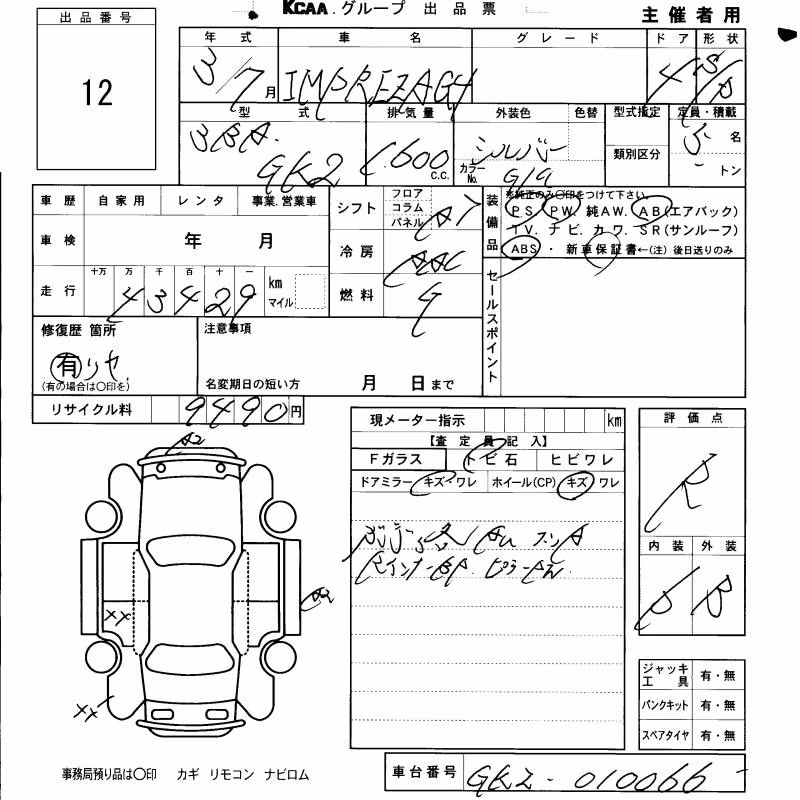 KCAA.グループ 出品票
主催者用
出品番号
12
年式 車名 グレード ドア 形状
3/7月 IMPREZA G4 4 S/D
型式 排気量 外装色 色替 型式指定 定員・積載
3BA. 1600 シルバー 5 名
GK2 c.c. カラーNo. G1U 類別区分 トン
車歴 自家用 レンタ 事業.営業車
シフト フロア コラム パネル AT
装備品 ※純正のみ○印をつけて下さい。
PS. PW. 純AW. AB(エアバック)
TV. ナビ. カワ. SR(サンルーフ)
ABS ・ 新車保証書←(注) 後日送りのみ
車検 年 月
冷房 AAC
セールスポイント
走行 十万 万 千 百 十 一 km マイル
43429
燃料 G
修復歴 箇所
有 リヤ.
(有の場合は○印を)
注意事項
名変期日の短い方 月 日まで
リサイクル料 9490円
現メーター指示 km
【査定員記入】
Fガラス トビ石 ヒビワレ
ドアミラー キズ・ワレ ホイール(CP) キズ ワレ
評価点
R
内装 外装
B
A2
XX
XX
ジャッキ工具 有・無
パンクキット 有・無
スペアタイヤ 有・無
事務局預り品は○印 カギ リモコン ナビロム
車台番号 GK2-010066